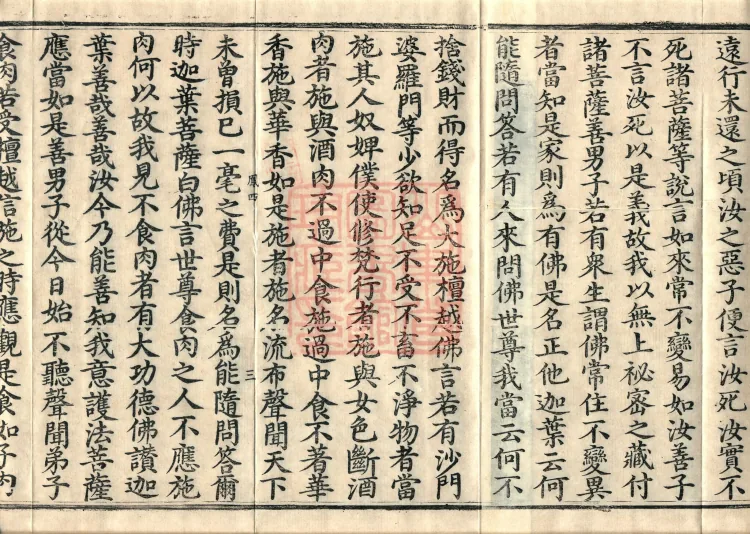 遠行未還之頃汝之惡子便言汝死汝實不
死諸菩薩等說言如來常不變易如汝善子
不言汝死以是義故我以無上祕密之藏付
諸菩薩善男子若有衆生謂佛常住不變異
者當知是家則爲有佛是名正他迦葉云何
能隨問答若有人來問佛世尊我當云何不
捨錢財而得名爲大施檀越佛言若有沙門
婆羅門等少欲知足不受不畜不淨物者當
施其人奴婢僕使修梵行者施與女色斷酒
肉者施與酒肉不過中食施過中食不著華
香施與華香如是施者施名流布聲聞天下
未曾損已一毫之費是則名爲能隨問答爾
鳳四
三
時迦葉菩薩白佛言世尊食肉之人不應施
肉何以故我見不食肉者有大功德佛讚迦
葉善哉善哉汝今乃能善知我意護法菩薩
應當如是善男子從今日始不聽聲聞弟子
食肉若受檀越言施之時應觀是食如子肉